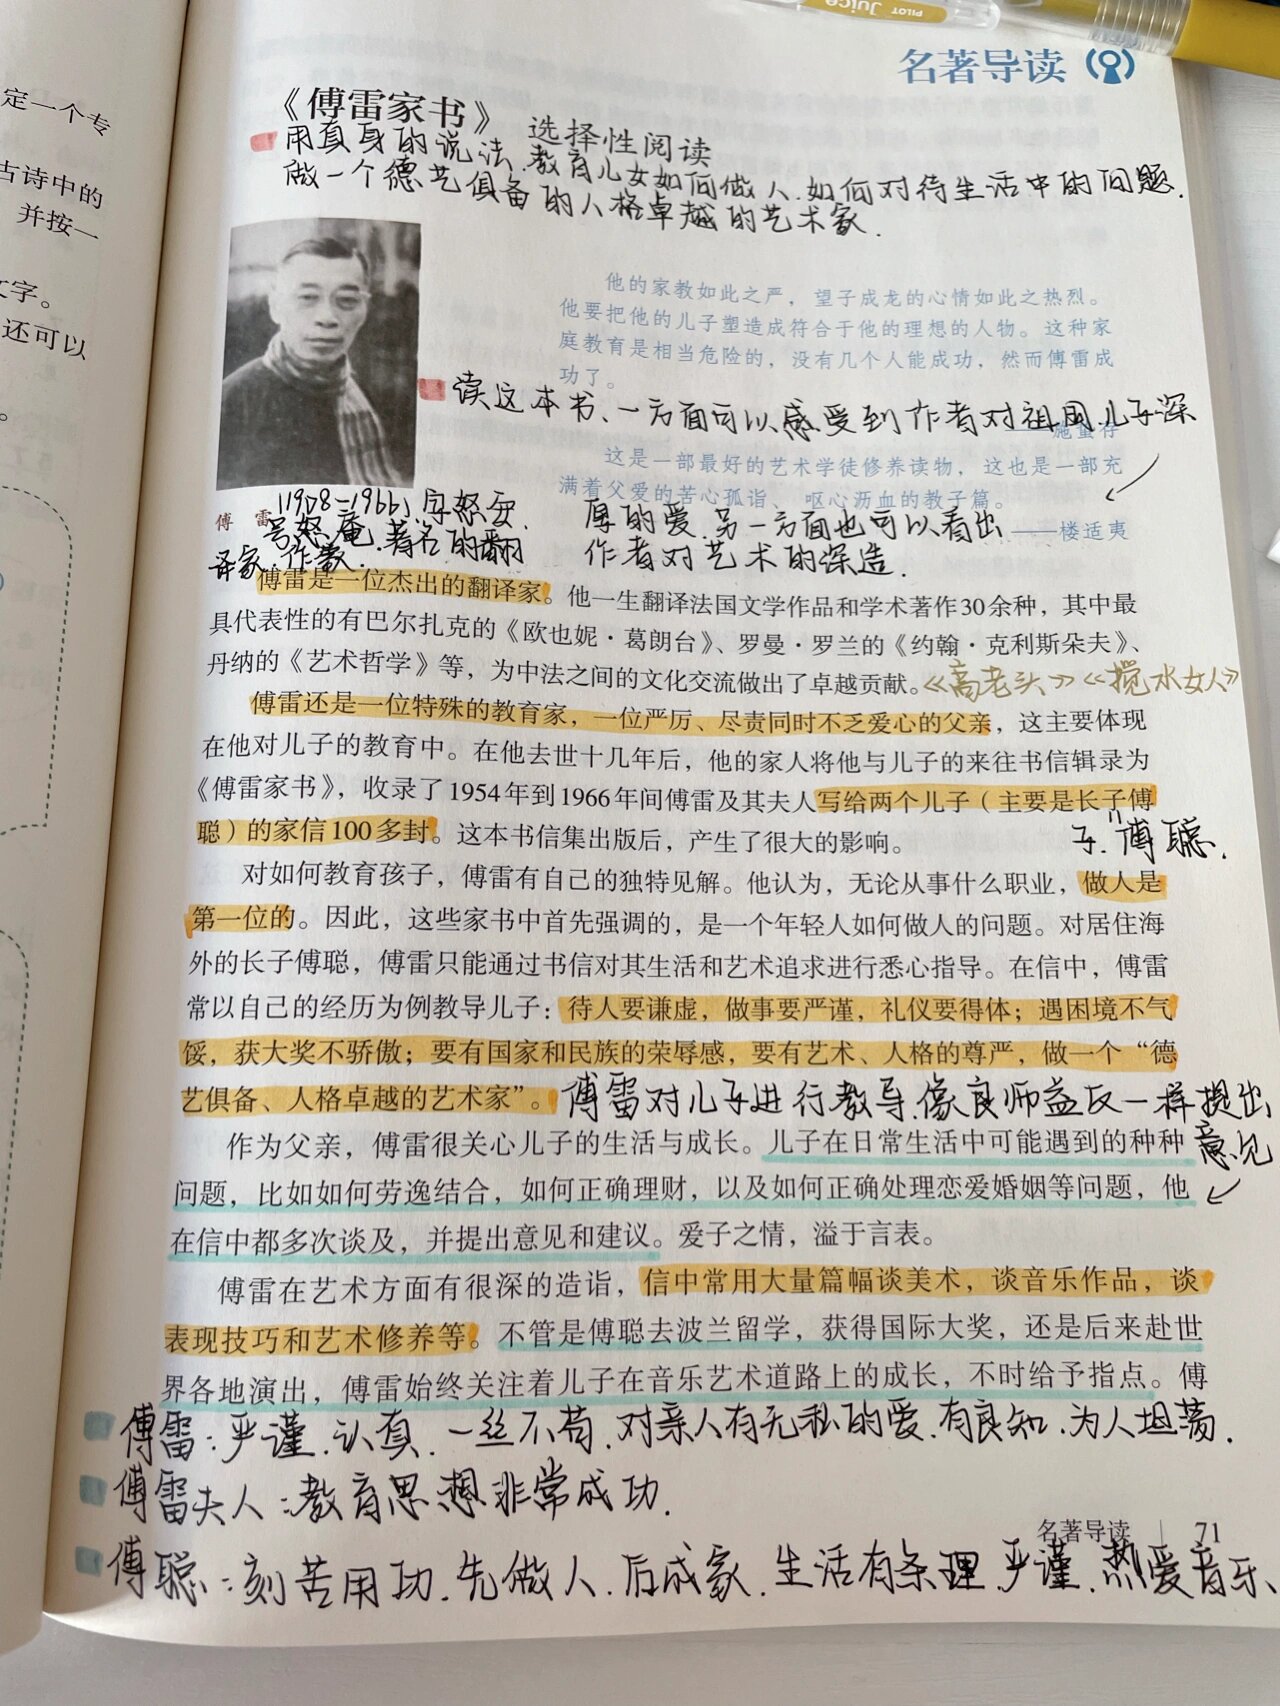 定一个专
古诗中的
并按一
文字。
还可以
。
PILOT Juice
名著导读
《傅雷家书》 选择性阅读
用真身的说法.教育儿女如何做人.如何对待生活中的问题.
做一个德艺俱备的人格卓越的艺术家.
他的家教如此之严，望子成龙的心情如此之热烈。
他要把他的儿子塑造成符合于他的理想的人物。这种家
庭教育是相当危险的，没有几个人能成功，然而傅雷成
功了。
读这本书、一方面可以感受到作者对祖国儿子深
施蛰存
这是一部最好的艺术学徒修养读物，这也是一部充
满着父爱的苦心孤诣、呕心沥血的教子篇。
厚的爱.另一方面也可以看出
——楼适夷
作者对艺术的深造.
傅雷
(1908-1966)字怒安.
号怒庵.著名的翻
译家.作家.
傅雷是一位杰出的翻译家。他一生翻译法国文学作品和学术著作30余种，其中最
具代表性的有巴尔扎克的《欧也妮·葛朗台》、罗曼·罗兰的《约翰·克利斯朵夫》、
丹纳的《艺术哲学》等，为中法之间的文化交流做出了卓越贡献。《高老头》《搅水女人》
傅雷还是一位特殊的教育家，一位严厉、尽责同时不乏爱心的父亲，这主要体现
在他对儿子的教育中。在他去世十几年后，他的家人将他与儿子的来往书信辑录为
《傅雷家书》，收录了1954年到1966年间傅雷及其夫人写给两个儿子（主要是长子傅
聪）的家信100多封。这本书信集出版后，产生了很大的影响。
子.傅聪.
对如何教育孩子，傅雷有自己的独特见解。他认为，无论从事什么职业，做人是
第一位的。因此，这些家书中首先强调的，是一个年轻人如何做人的问题。对居住海
外的长子傅聪，傅雷只能通过书信对其生活和艺术追求进行悉心指导。在信中，傅雷
常以自己的经历为例教导儿子：待人要谦虚，做事要严谨，礼仪要得体；遇困境不气
馁，获大奖不骄傲；要有国家和民族的荣辱感，要有艺术、人格的尊严，做一个“德
艺俱备、人格卓越的艺术家”。傅雷对儿子进行教导.像良师益友一样提出
意见
作为父亲，傅雷很关心儿子的生活与成长。儿子在日常生活中可能遇到的种种
问题，比如如何劳逸结合，如何正确理财，以及如何正确处理恋爱婚姻等问题，他
在信中都多次谈及，并提出意见和建议。爱子之情，溢于言表。
傅雷在艺术方面有很深的造诣，信中常用大量篇幅谈美术，谈音乐作品，谈
表现技巧和艺术修养等。不管是傅聪去波兰留学，获得国际大奖，还是后来赴世
界各地演出，傅雷始终关注着儿子在音乐艺术道路上的成长，不时给予指点。傅
傅雷：严谨.认真.一丝不苟.对亲人有无私的爱.有良知.为人坦荡.
傅雷夫人：教育思想非常成功.
名著导读 | 71
傅聪：刻苦用功.先做人.后成家.生活有条理.严谨.热爱音乐、